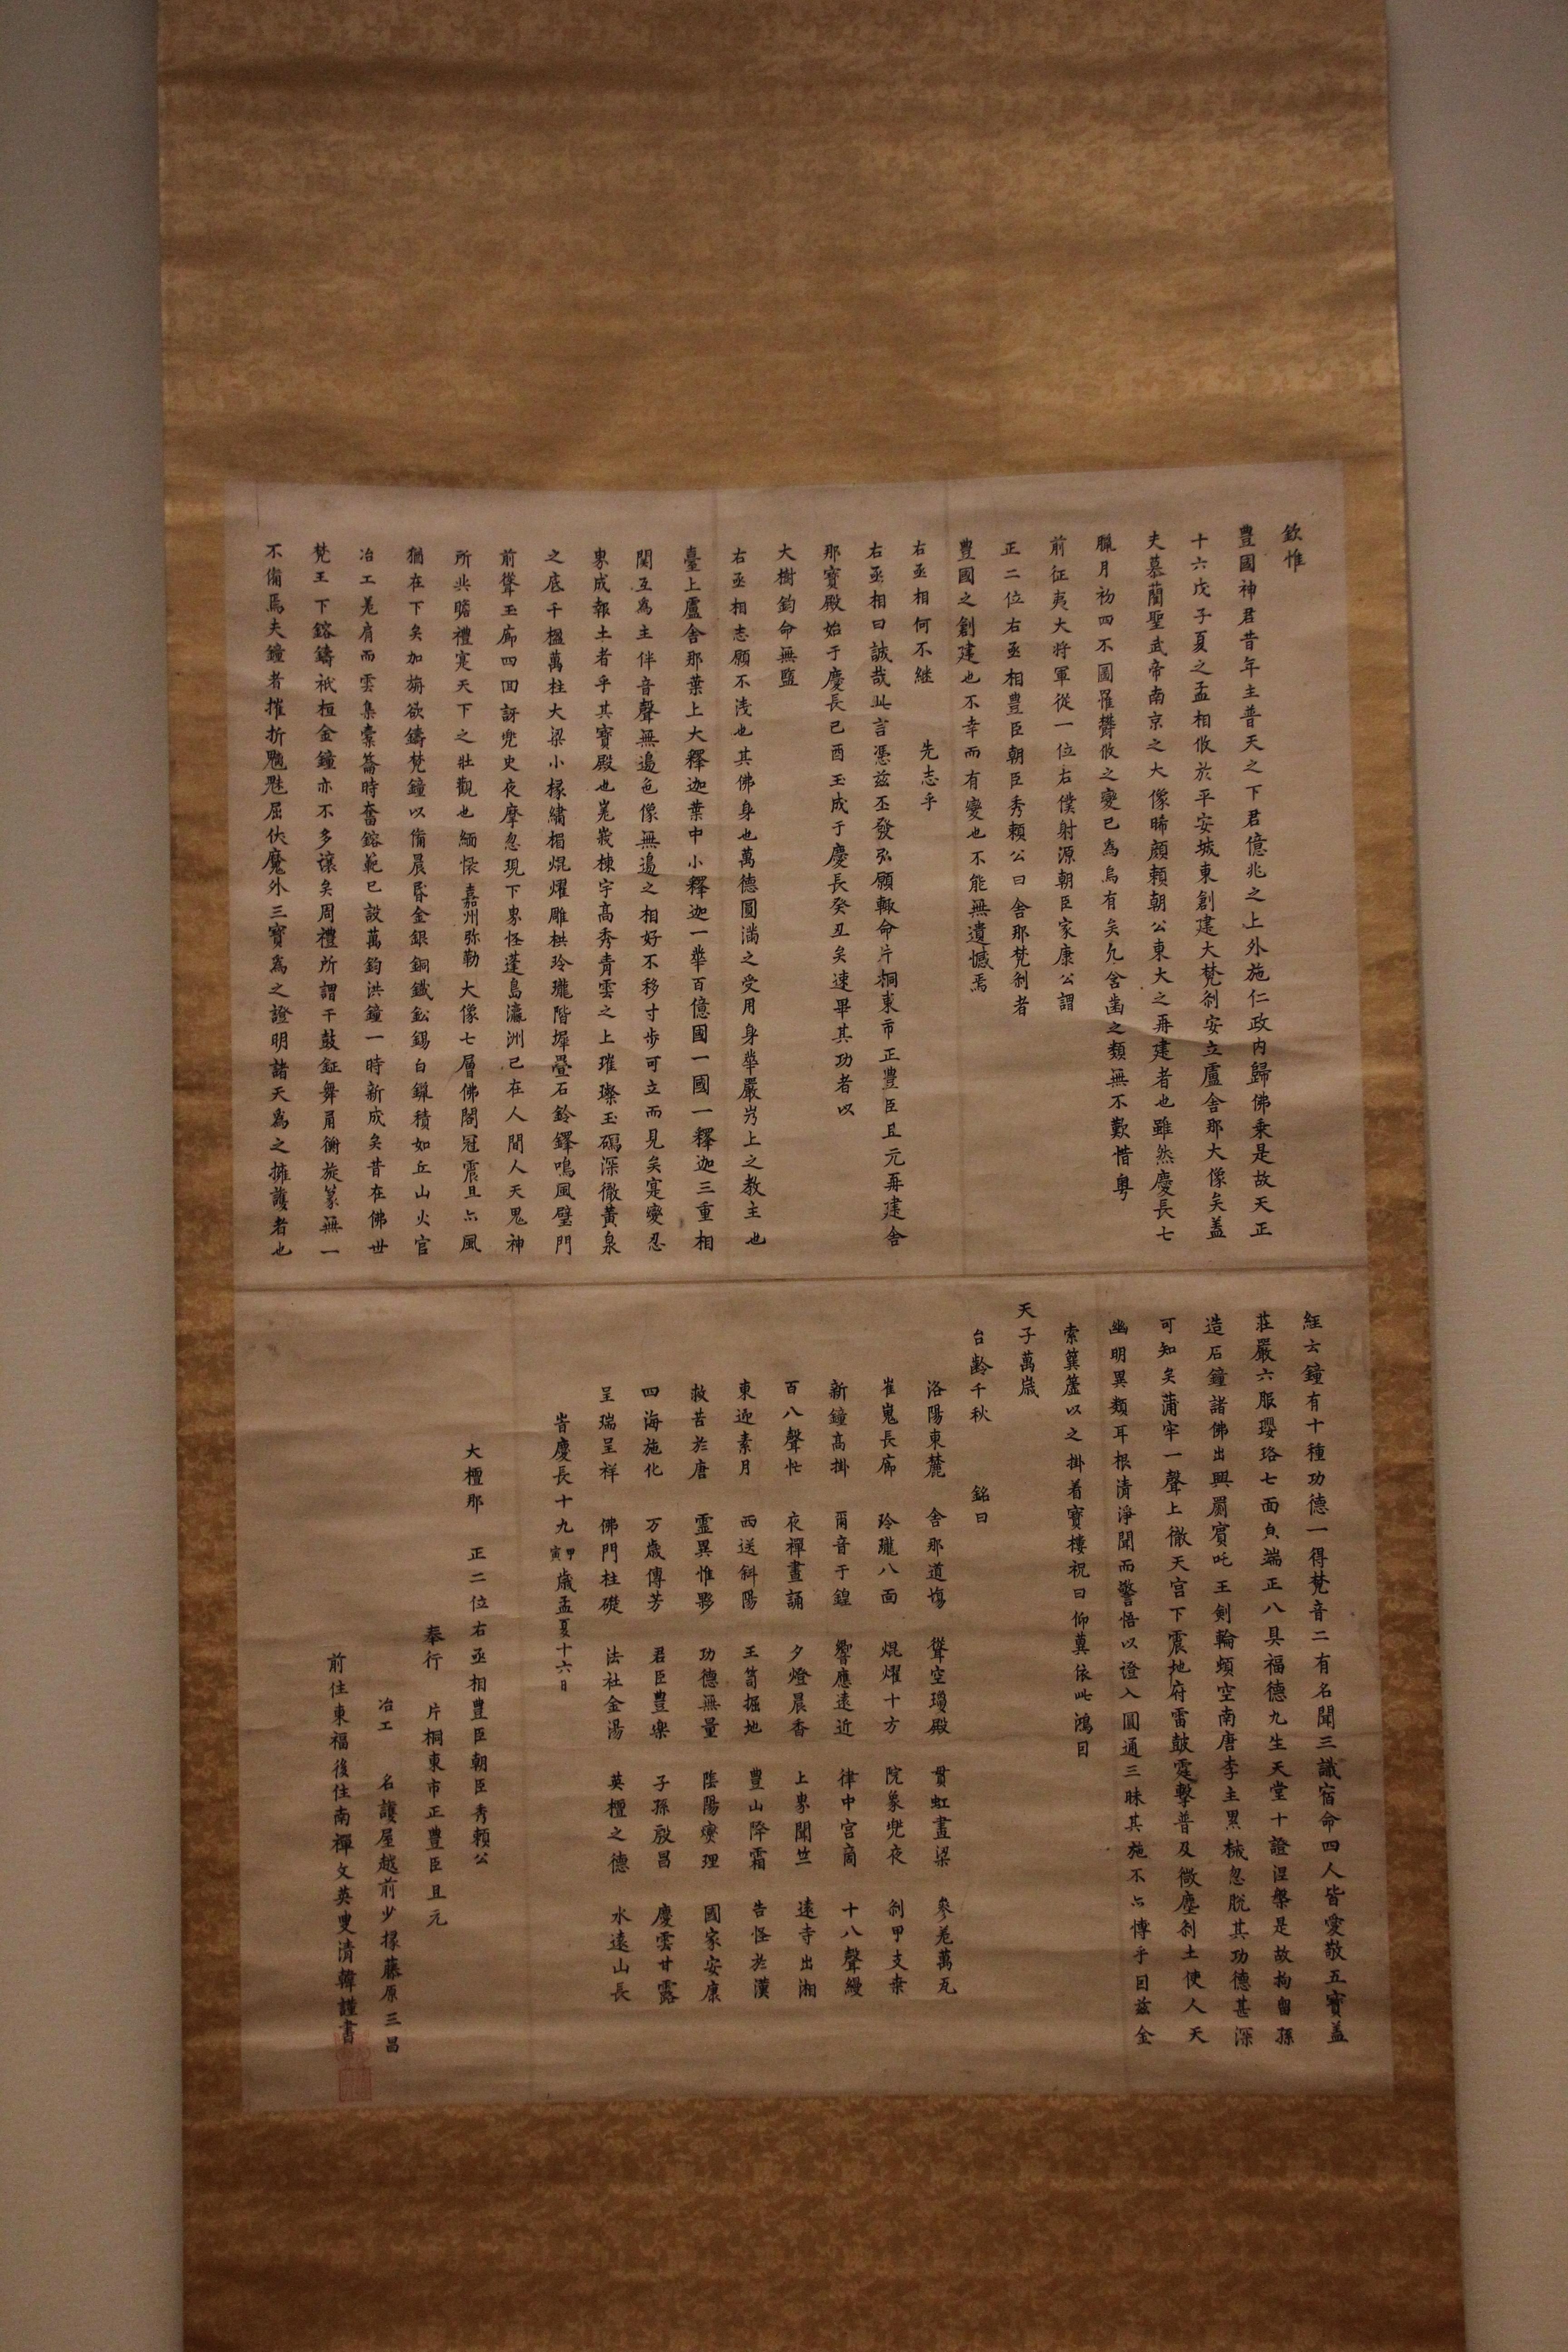 欽惟
豊國神君昔年主普天之下君億兆之上外施仁政内歸佛乗是故天正
十六戊子夏之孟相攸於平安城東創建大梵刹安立盧舎那大像矣盖
夫慕蘭聖武帝南京之大像晞顔頼朝公東大之再建者也雖然慶長七
臘月初四不圖罹欝攸之變已為烏有矣凢含齒之類無不歎惜粤
前征夷大将軍従一位右僕射源朝臣家康公謂
正二位右丞相豊臣朝臣秀頼公曰舎那梵刹者
豊國之創建也不幸而有變也不能無遺憾焉
右丞相何不継 先志乎
右丞相曰誠哉此言憑玆丕發弘願輙命片桐東市正豊臣且元再建舎
那寶殿始于慶長己酉玉成于慶長癸丑矣速畢其功者以
大樹鈞命無盬
右丞相志願不浅也其佛身也萬德圓満之受用身華嚴岃上之教主也
臺上盧舎那葉上大釋迦葉中小釋迦一華百億國一國一釋迦三重相
関互為主伴音聲無邉色像無邉之相好不移寸歩可立而見矣寔變忍
界成報土者乎其寶殿也嵬峩棟宇高秀青雲之上璀璨玉礀深徹黄泉
之底千楹萬柱大梁小椽繍楣焜燿雕栱玲瓏階墀疊石鈴鐸鳴風璧門
前聳玉廊四回訝兜史夜摩忽現下界怪蓬島瀛洲已在人間人天鬼神
所共瞻禮寔天下之壯觀也緬懐嘉州弥勒大像七層佛閣冠震旦亦風
猶在下矣加旃欲鑄梵鐘以備晨昏金銀銅鐵鈆錫白鑞積如丘山火官
冶工差肩而雲集橐籥時奮鎔範已設萬鈞洪鐘一時新成矣昔在佛世
梵王下鎔鑄祇桓金鐘亦不多譲矣周禮所謂于鼓鉦舞甬衡旋篆無一
不備焉夫鐘者摧折魍魎屈伏魔外三寶為之證明諸天為之擁護者也
経云鐘有十種功德一得梵音二有名聞三識宿命四人皆愛敬五寳盖
莊嚴六服瓔珞七面皃端正八具福德九生天堂十證涅槃是故拘留孫
造石鐘諸佛出興罽賓吒王剣輪頓空南唐李主累械忽脱其功德甚深
可知矣蒲牢一聲上徹天宮下震地府雷鼓霆撃普及微塵刹土使人天
幽明異類耳根清淨聞而警悟以證入圓通三昧其施不亦愽乎因玆金
索簨簴以之掛着寶樓祝曰仰冀依此鴻因
天子萬歳
台齢千秋 銘曰
洛陽東麓 舎那道塲 聳空瓊殿 貫虹畫梁 參差萬瓦
崔嵬長廊 玲瓏八面 焜燿十方 院象兜夜 刹甲支桒
新鐘高掛 爾音于鍠 響應遠近 律中宮商 十八聲縵
百八聲忙 夜禪晝誦 夕燈晨香 上界聞竺 遠寺出湘
東迎素月 西送斜陽 玉筍掘地 豊山降霜 告怪於漢
救苦於唐 霊異惟夥 功德無量 陰陽燮理 國家安康
四海施化 万歳傳芳 君臣豊樂 子孫殷昌 慶雲甘露
呈瑞呈祥 佛門柱礎 法社金湯 英檀之德 水遠山長
旹慶長十九甲寅歳孟夏十六日
大檀那 正二位右丞相豊臣朝臣秀頼公
奉行 片桐東市正豊臣且元
冶工 名護屋越前少掾藤原三昌
前住東福後住南禪文英叟清韓謹書